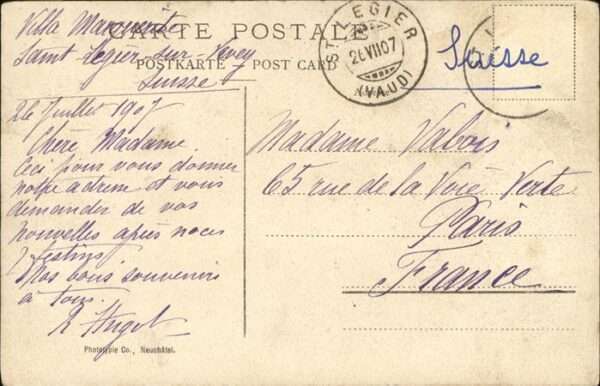 CARTE POSTALE
POSTKARTE - POST CARD
Villa Marguerite
Saint Légier-sur-Vevey
Suisse
26 Juillet 1907
Chère Madame.
Ceci pour vous donner
notre adresse et vous
demander de vos
nouvelles après noces
& festins!
Nos bons souvenirs
à tous.
Phototypie Co., Neuchâtel.
ST LEGIER
26 VII 07
(VAUD)
Suisse
Madame Valois
65 rue de la Voie Verte
Paris
France